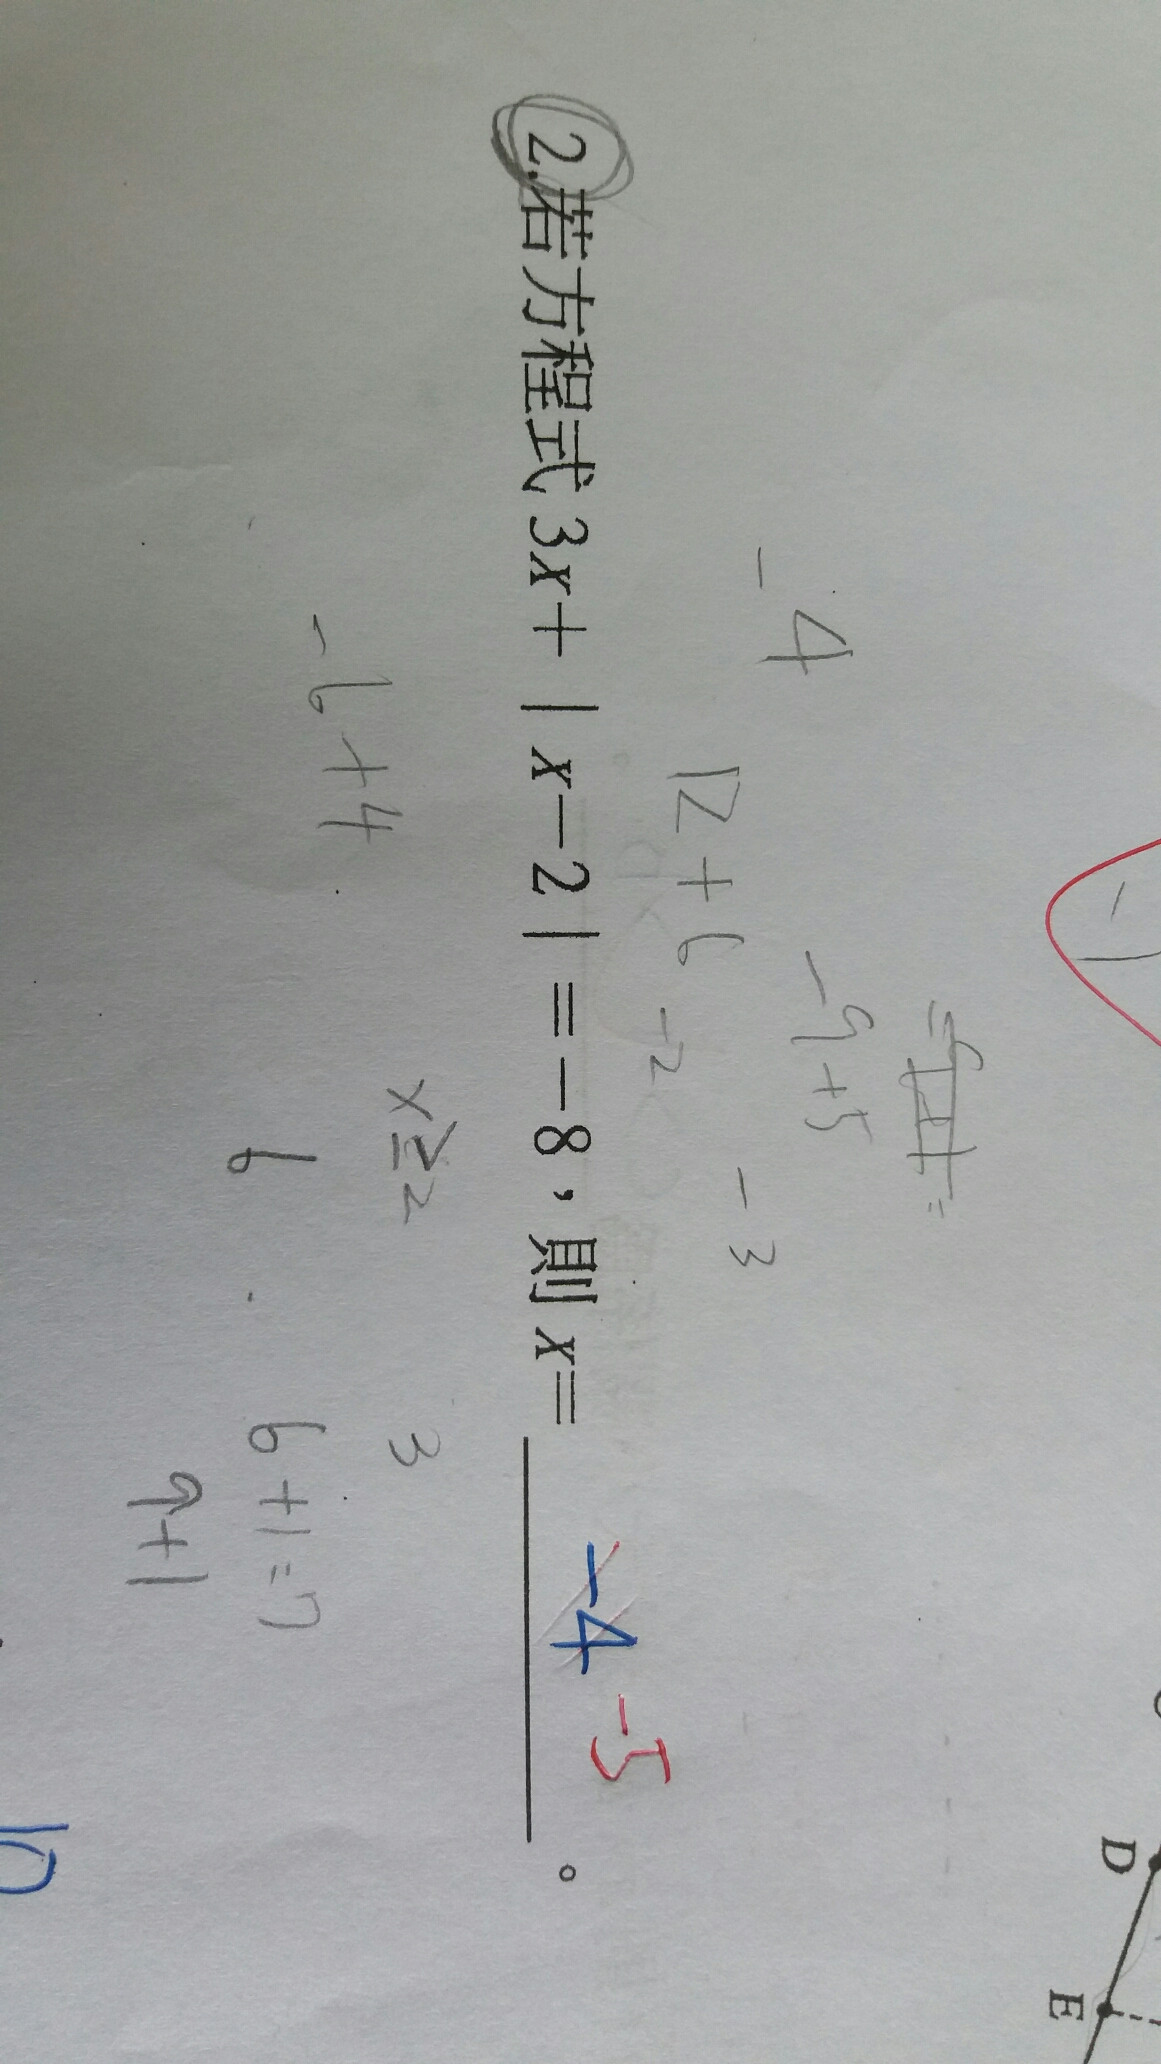 -1
-4
-9+5
12+6
-2
-3
2.若方程式3x+|x-2|=-8,則x= -4 -5 。
x≥2
3
-6+4
6
6+1=7
↑+1
D
E